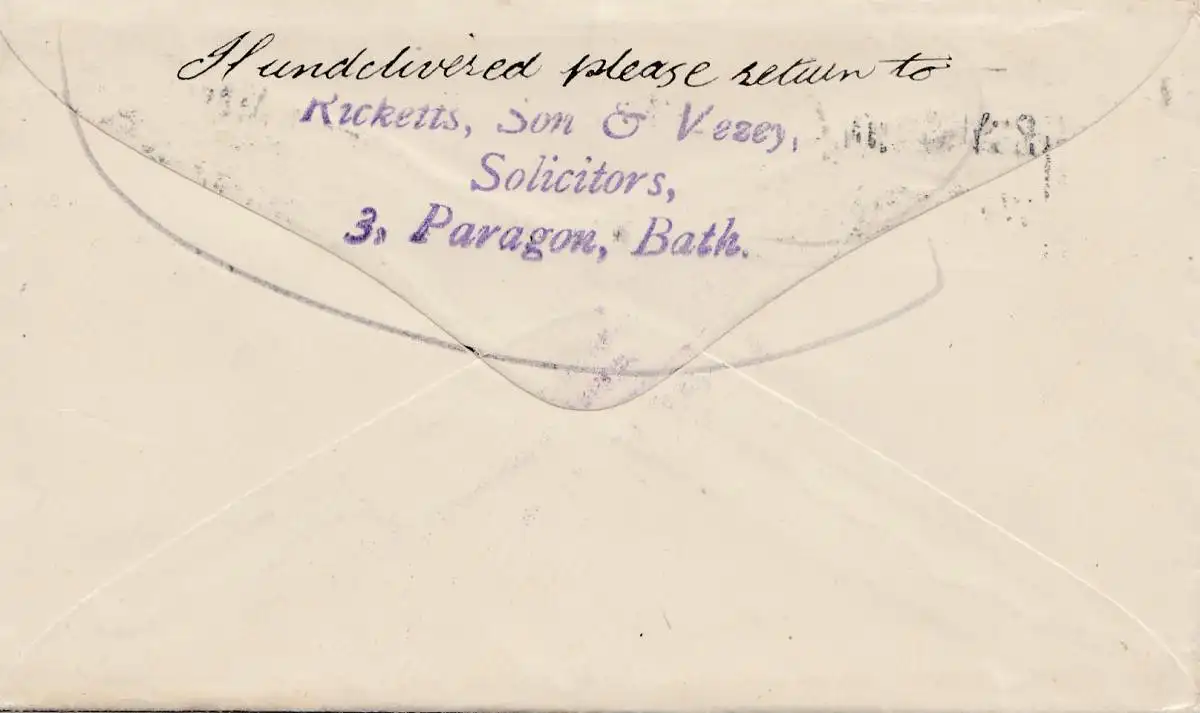 If undelivered please return to
Ricketts, Son & Vezey,
Solicitors,
3, Paragon, Bath.